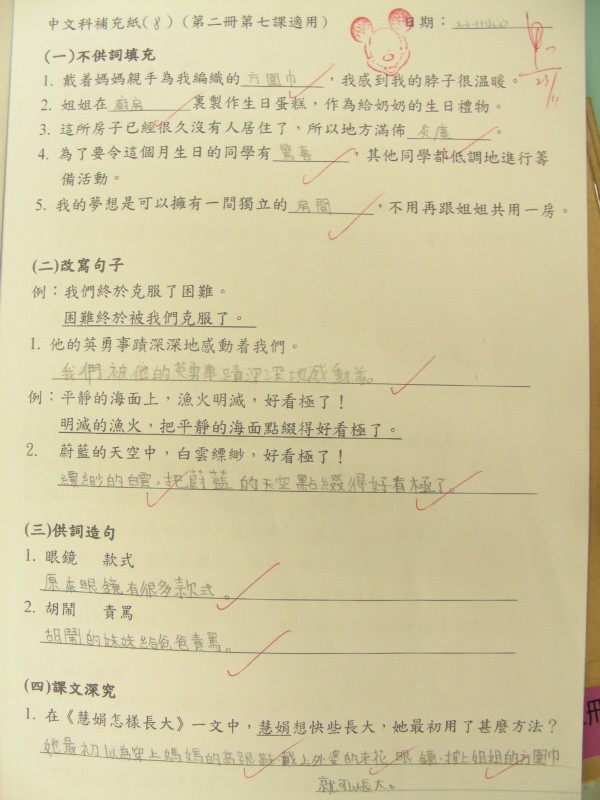 中文科補充紙(8)(第二冊第七課適用) 日期：
(一)不供詞填充
1. 戴着媽媽親手為我編織的方圍巾，我感到我的脖子很溫暖。
2. 姐姐在廚房裏製作生日蛋糕，作為給奶奶的生日禮物。
3. 這所房子已經很久沒有人居住了，所以地方滿佈灰塵。
4. 為了要令這個月生日的同學有驚喜，其他同學都低調地進行籌
備活動。
5. 我的夢想是可以擁有一間獨立的房間，不用再跟姐姐共用一房。
(二)改寫句子
例：我們終於克服了困難。
困難終於被我們克服了。
1. 他的英勇事蹟深深地感動着我們。
我們被他的英勇事蹟深深地感動着。
例：平靜的海面上，漁火明滅，好看極了！
明滅的漁火，把平靜的海面點綴得好看極了。
2. 蔚藍的天空中，白雲縹緲，好看極了！
縹緲的白雲，把蔚藍的天空點綴得好看極了。
(三)供詞造句
1. 眼鏡 款式
原來眼鏡有很多款式。
2. 胡鬧 責罵
胡鬧的妹妹給爸爸責罵。
(四)課文深究
1. 在《慧娟怎樣長大》一文中，慧娟想快些長大，她最初用了甚麼方法？
她最初以為穿上媽媽的高跟鞋,戴上外婆的老花眼鏡,披上姐姐的方圍巾
就可以長大。
冊